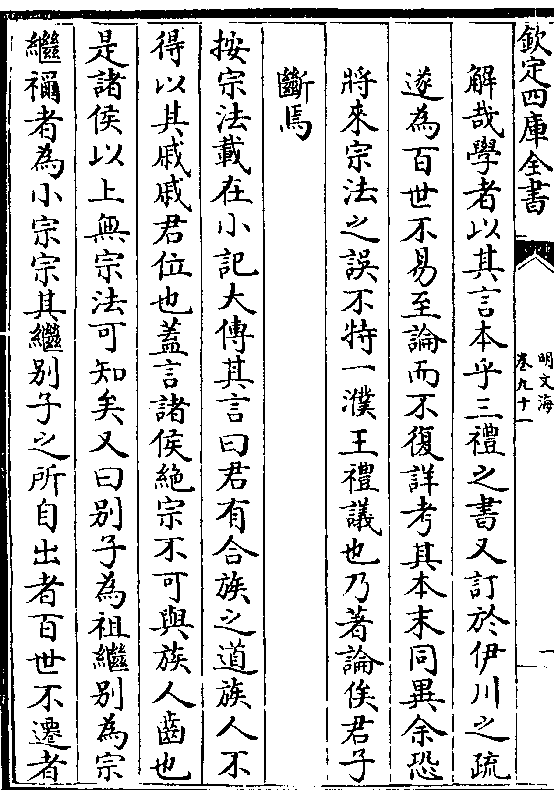 欽定四庫全書
明文海
卷九十一
解哉學者以其言本乎三禮之書又訂於伊川之疏
遂為百世不易至論而不復詳考其本末同異余恐
將來宗法之誤不特一濮王禮議也乃著論俟君子
斷焉
按宗法載在小記大傳其言曰君有合族之道族人不
得以其戚戚君位也蓋言諸侯絶宗不可與族人齒也
是諸侯以上無宗法可知矣又曰别子為祖繼别為宗
繼禰者為小宗宗其繼别子之所自出者百世不遷者